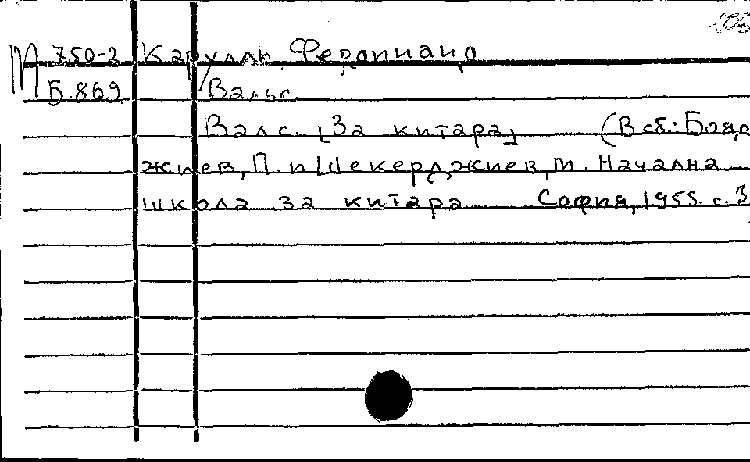 М 750-2 Карулли, Фердинанд
Б.869 Вальс
Валс. [За китара] (В сб.: Бояд
жиев, П. и Шекерджиев, М. Начална
школа за китара София, 1955. с. 3